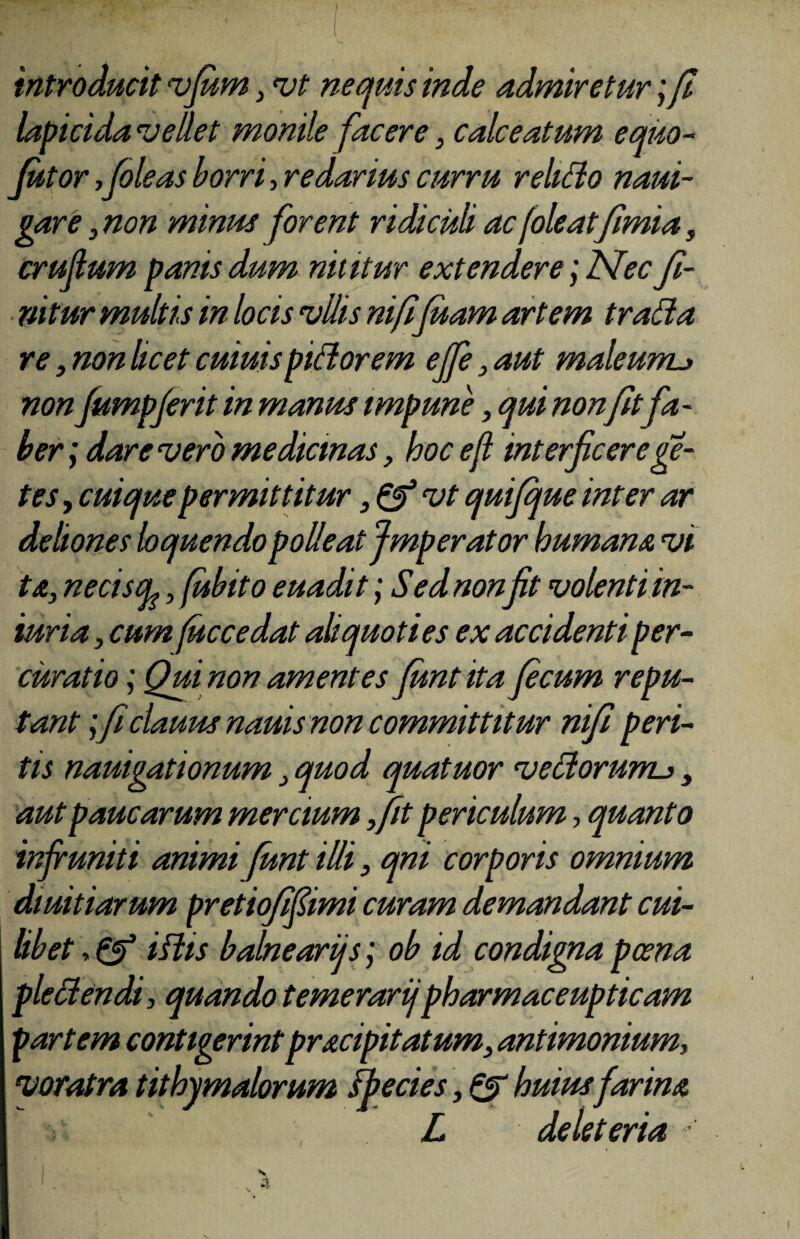 introducit vſum, vt nequis inde admiretur; ſi
lapicida vellet monile facere, calceatum equo-
ſutor, ſoleas horri, redarius curru relicto naui-
gare, non minus forent ridiculi ac ſoleat ſimia,
cruſtum panis dum nititur extendere; Nec ſi-
nitur multis in locis vllis niſi ſuam artem tracta
re, non licet cuiuis pictorem eſſe, aut maleum
non ſumpſerit in manus impunè, qui non ſit fa-
ber; dare verò medicinas, hoc eſt interficere gẽ-
tes, cuique permittitur, & vt quiſque inter ar
deliones loquendo polleat Imperator humanæ vi
tæ, necisq;, ſubito euadit; Sed non fit volenti in-
iuria, cum ſuccedat aliquoties ex accidenti per-
curatio; Qui non amentes ſunt ita ſecum repu-
tant; ſi clauus nauis non committitur niſi peri-
tis nauigationum, quod quatuor vectorum,
aut paucarum mercium, ſit periculum, quanto
infruniti animi ſunt illi, qni corporis omnium
diuitiarum pretioſiſſimi curam demandant cui-
libet, & iſtis balnearijs; ob id condigna pœna
plectendi, quando temerarij pharmaceupticam
partem contigerint præcipitatum, antimonium,
voratra tithymalorum ſpecies, & huius farinæ
L deleteria